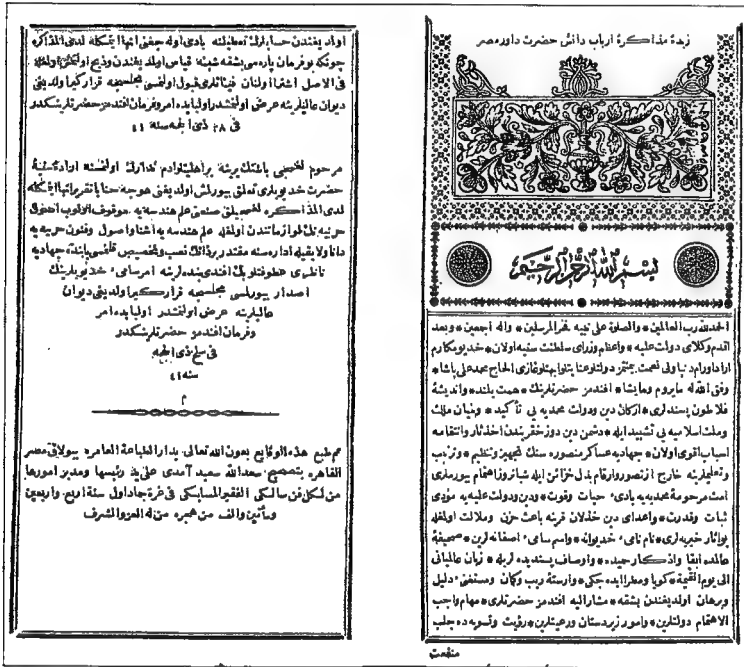 زبدۀ مذاكرۀ ارباب دانش حضرت داور مصر
بسم الله الرحمن الرحيم
الحمد لله رب العالمين * والصلوة على نبيه فخر المرسلين * وآله اجمعين * وبعد
اقدم وكلاى دولت عليه * واعظم وزراى سلطنت سنيه اولان * خديو مكارم
غازى الحاج محمد على پاشا *
وفق الله له مايروم ومايشا * افندمز حضرتلرينك * همت بلند * وانديشۀ
فلاطون پسندلرى * اركان دين ودولت محمديه يى تأكيد * وبنيان ملك
وملت اسلاميه يى تشييد ايله * دشمن دين دوزخ قريندن اخذ ثار وانتقامه
اسباب اقوى اولان * جهاديه عساكر منصوره سنك تجهيز وتنظيم * وترتيب
وتعليملرينه خارج از تصور وارقام بذل خزائن ايله شبانروز اهتمام بيورملرى
امت مرحومۀ محمديه يه بادئ حيات وقوت * ودين ودولت عليه يه مؤدى
ثبات وقدرت * واعداى دين خذلان قرينه باعث حزن وملالت اولغله
بو آثار خيريه لرى * نام نامئ خديوانه * واسم سامئ اصفانه لرين * صحيفۀ
عالمده ابقا واذكار حميده * واوصاف پسنديده لريله * زبان عالميانى
الى يوم القيمة * كويا ومعطر ايده جكى * وارستۀ ريب وكمان ومستغنئ دليل
وبرهان اولديغندن بشقه * مشار اليه افندمز حضرتلرى * مهام واجب
الاهتمام دولتلرين * وامور زيردستان ورعيتلرين * رؤيت وتسويه ده جلب
منفعت
اولديغندن حسابلرك تعطيلنه بادى اوله جغنى انها ايتمكله لدى المذاكره
چونكه بو فرمان پاره سى بشقه شيئه قياس اولمديغندن
فى الاصل اشترا اولنان فيئاتلرى قبول اولنمسى مجلسجه قراركير اولديغى
ديوان عاليلرينه عرض اولنمشدر اولبابده امر وفرمان افندمز حضرتلرينكدر
فى ٢٨ ذى الحجه سنه ٤٤
حضرت خديويلرى تعلق بيورلمش اولديغنى خوجه
لدى المذاكره تحصيللق صنعتى علم هندسه يه موقوف اولوب اصول
حربيه نك لوازماتندن اولمغله علم هندسه يه آشنا واصول وفنون حربيه يه
دانا ولايقيله اداره سنه مقتدر برذاتك نصب وتخصيص قلنمسى بابنده جهاديه
ناظرى عطوفتلو بك افندى بنده لرينه امر سامئ خديويلرينك
اصدار بيورلمسى مجلسجه قراركير اولديغى ديوان
عاليلرينه عرض اولنمشدر اولبابده امر
وفرمان افندمز حضرتلرينكدر
فى سلخ ذى الحجه
سنه ٤٤
م
تم طبع هذه الوقايع بعون الله تعالى بدار الطباعة العامره ببولاق مصر
القاهره بتصحيح سعد الله سعيد آمدى على يد رئيسها ومدير امورها
من لكل فن سالكى الفقير المسابكى فى غرة جماد اول سنة اربع واربعين
ومأتين والف من هجرة من له العز والشرف